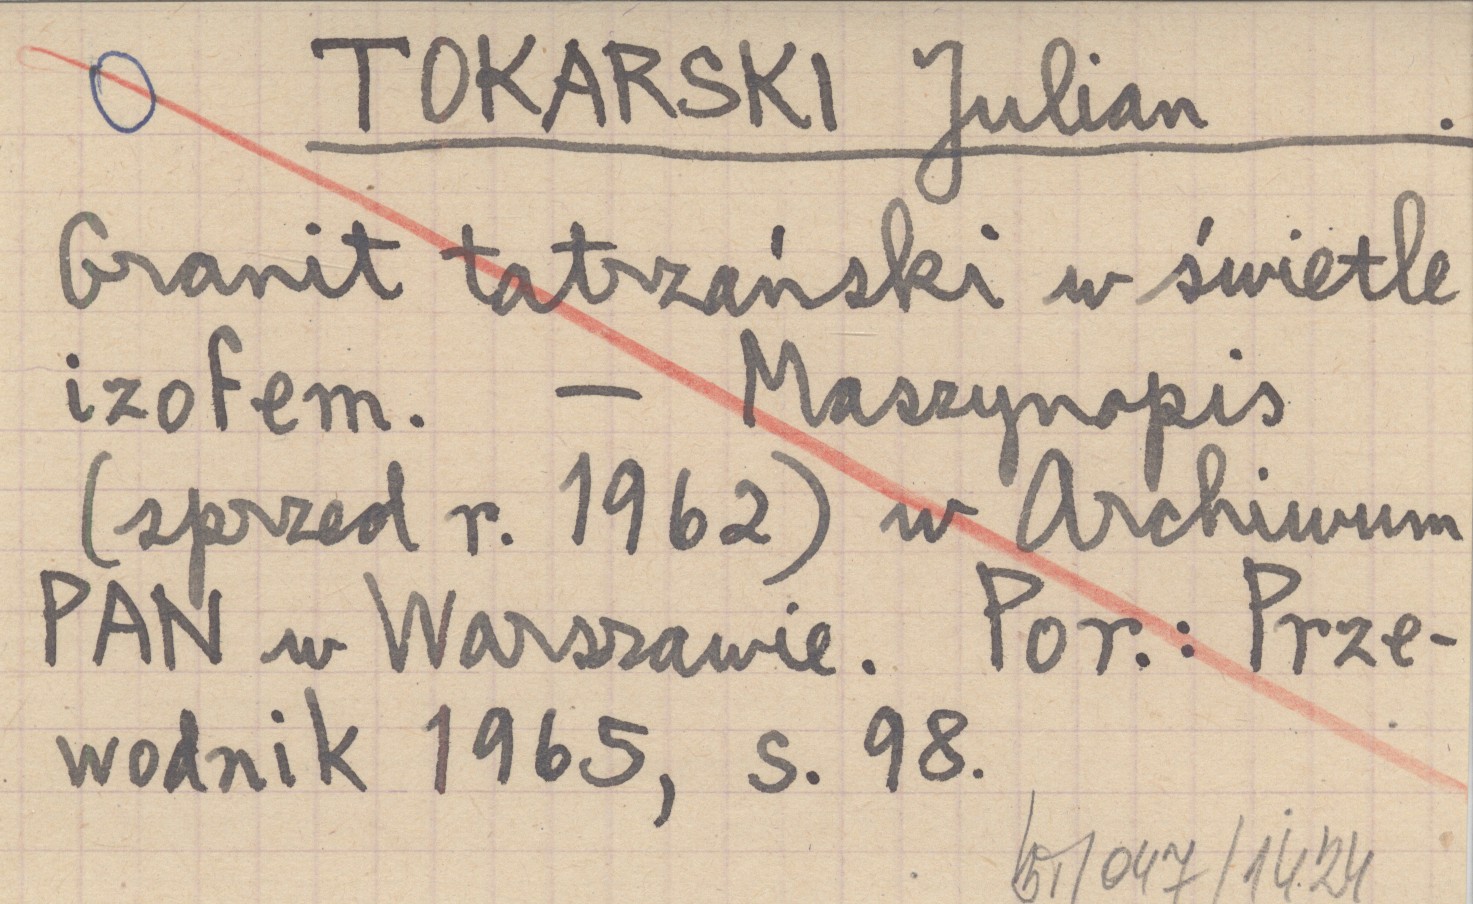 TOKARSKI Julian .
Granit tatrzański w świetle
izofem. — Maszynopis
(sprzed r. 1962) w Archiwum
PAN w Warszawie. Por.: Prze-
wodnik 1965, s. 98.
/047/14.24